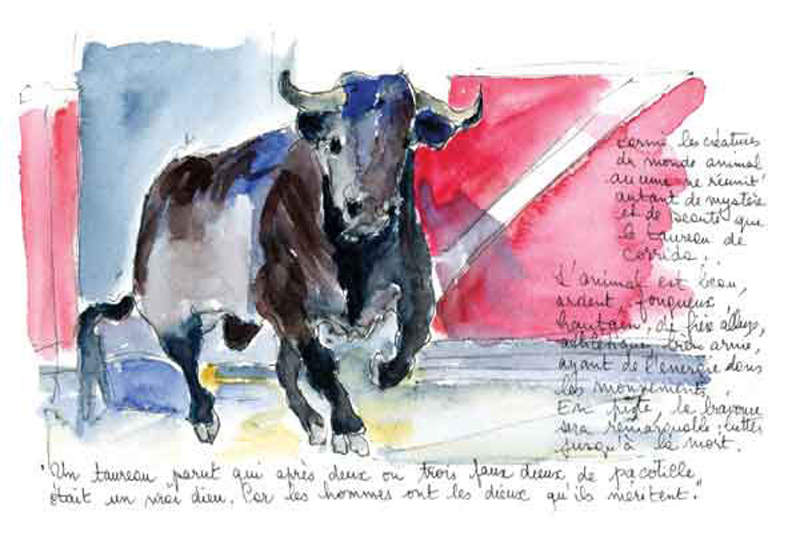 Parmi les créatures
du monde animal
aucune ne réunit
autant de mystère
et de beauté que
le taureau de
corrida.
L'animal est beau,
ardent, fougueux,
hautain, de fière allure,
athlétique, bien armé,
ayant de l'énergie dans
les mouvements.
En piste, la bravoure
sera remarquable : lutter
jusqu'à la mort.
"Un taureau parut qui après deux ou trois faux dieux de pacotille
était un vrai dieu. Car les hommes ont les dieux qu'ils méritent."